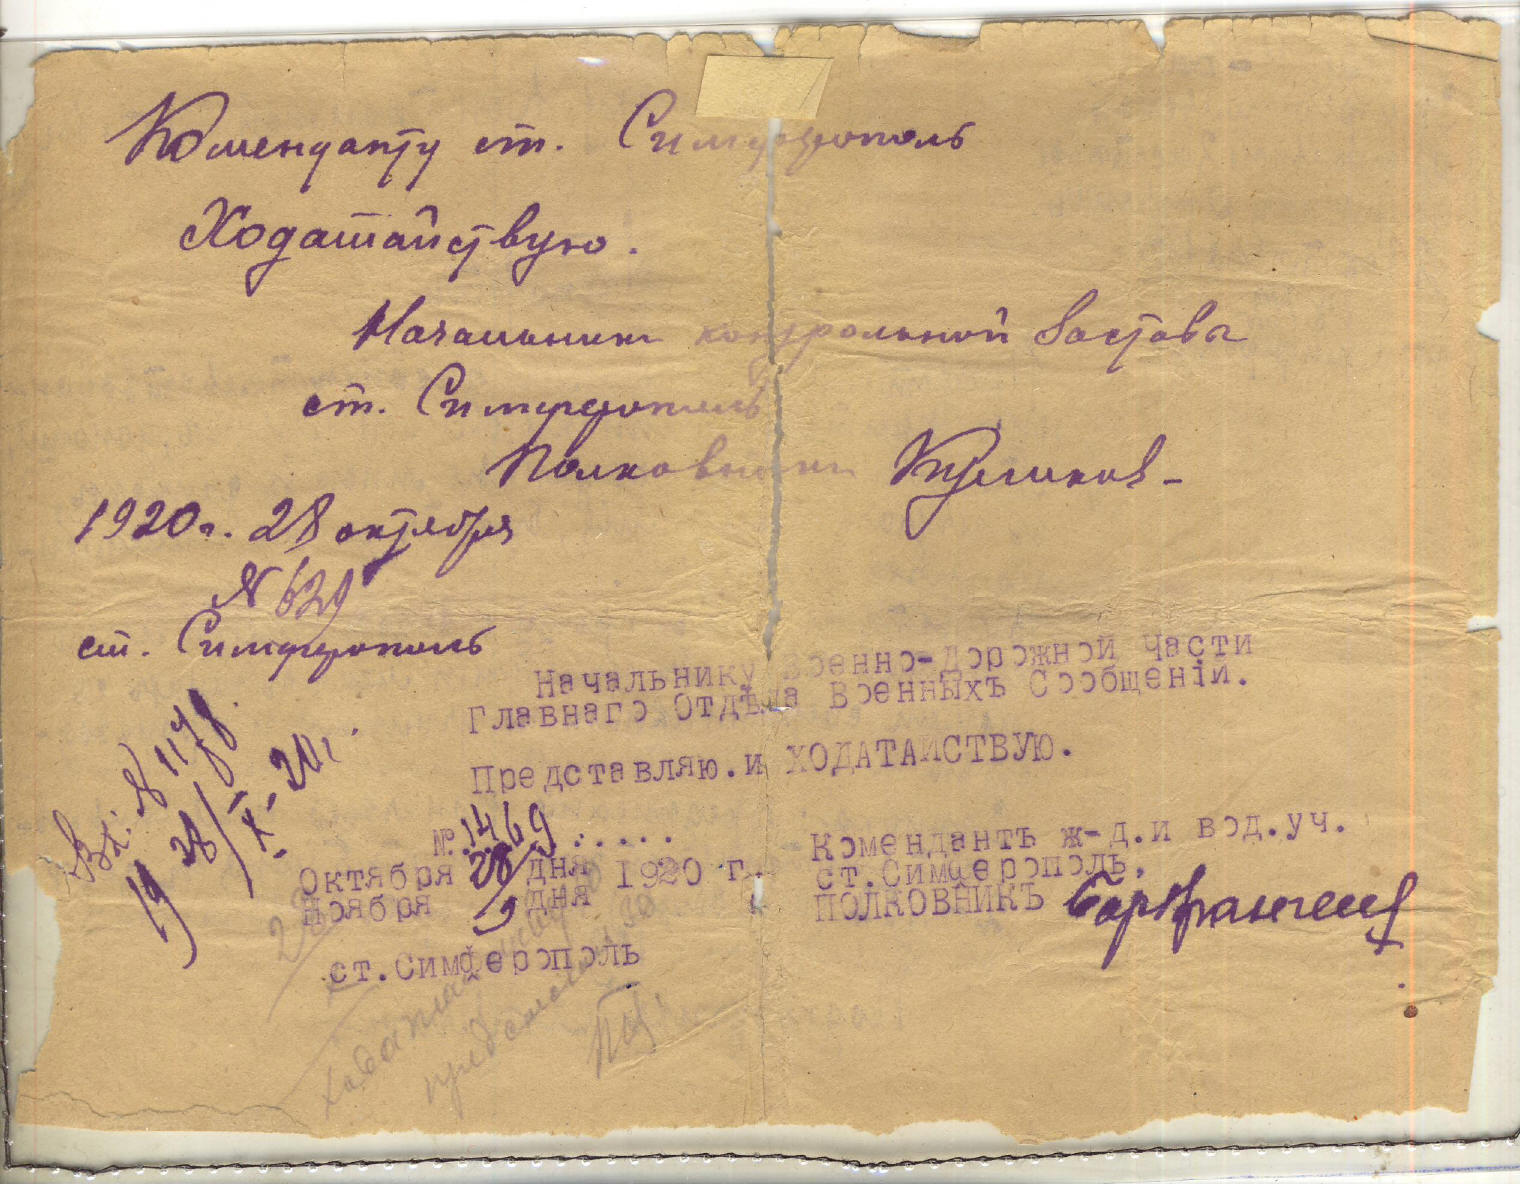 Коменданту ст. Симферополь
Ходатайствую.
Начальник контрольной заставы
ст. Симферополь
Полковник Куликов
1920 г. 28 октября
№ 629
ст. Симферополь
Начальнику Военно-Дорожной части
Главнаго Отдѣла Военныхъ Сообщеній.
Представляю.и ХОДАТАЙСТВУЮ.
Вх. № 1178.
19 28/X 20 г.
№.1469.....
Октября 28 дня
Ноября дня
1920 г.
ст.Симферополь
Комендантъ ж-д.и вод.уч.
ст.Симферополь.
ПОЛКОВНИКЪ
Ходатайствую